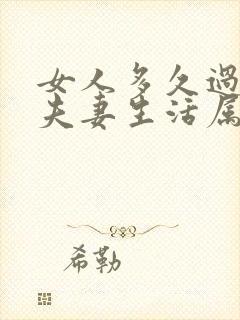 女人多久過
夫妻生活属
希勒